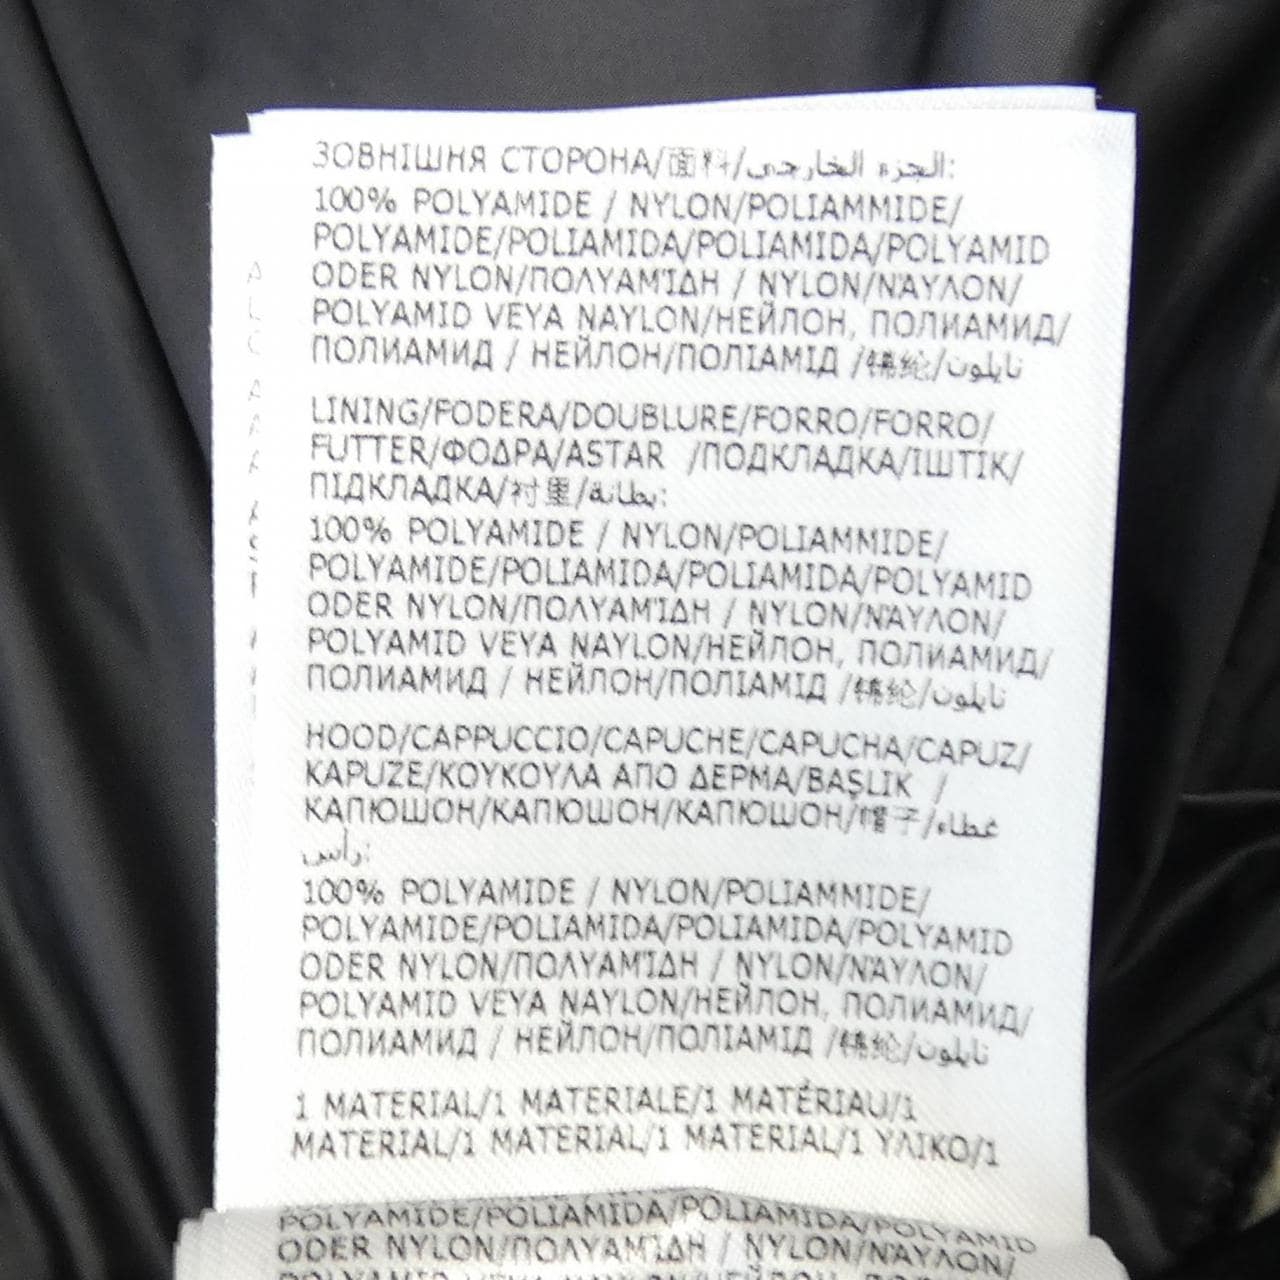 ЗОВНІШНЯ СТОРОНА/面料/الجزء الخارجي:
100% POLYAMIDE / NYLON/POLIAMMIDE/
POLYAMIDE/POLIAMIDA/POLIAMIDA/POLYAMID
ODER NYLON/ΠΟΛΥΑΜΊΔΗ / NYLON/ΝΆΥΛΟΝ/
POLYAMID VEYA NAYLON/НЕЙЛОН, ПОЛИАМИД/
ПОЛИАМИД / НЕЙЛОН/ПОЛІАМІД /锦纶/نايلون
LINING/FODERA/DOUBLURE/FORRO/FORRO/
FUTTER/ΦΟΔΡΑ/ASTAR /ПОДКЛАДКА/ІШТІК/
ПІДКЛАДКА/衬里/بطانة:
100% POLYAMIDE / NYLON/POLIAMMIDE/
POLYAMIDE/POLIAMIDA/POLIAMIDA/POLYAMID
ODER NYLON/ΠΟΛΥΑΜΊΔΗ / NYLON/ΝΆΥΛΟΝ/
POLYAMID VEYA NAYLON/НЕЙЛОН, ПОЛИАМИД/
ПОЛИАМИД / НЕЙЛОН/ПОЛІАМІД /锦纶/نايلون
HOOD/CAPPUCCIO/CAPUCHE/CAPUCHA/CAPUZ/
KAPUZE/ΚΟΥΚΟΥΛΑ ΑΠΟ ΔΕΡΜΑ/BAŞLIK /
КАПЮШОН/КАПЮШОН/КАПЮШОН/帽子/غطاء
رأس:
100% POLYAMIDE / NYLON/POLIAMMIDE/
POLYAMIDE/POLIAMIDA/POLIAMIDA/POLYAMID
ODER NYLON/ΠΟΛΥΑΜΊΔΗ / NYLON/ΝΆΥΛΟΝ/
POLYAMID VEYA NAYLON/НЕЙЛОН, ПОЛИАМИД/
ПОЛИАМИД / НЕЙЛОН/ПОЛІАМІД /锦纶/نايلون
1 MATERIAL/1 MATERIALE/1 MATÉRIAU/1
MATERIAL/1 MATERIAL/1 MATERIAL/1 ΥΛΙΚΟ/1
POLYAMIDE/POLIAMIDA/POLIAMIDA/POLYAMID
ODER NYLON/ΠΟΛΥΑΜΊΔΗ / NYLON/ΝΆΥΛΟΝ/